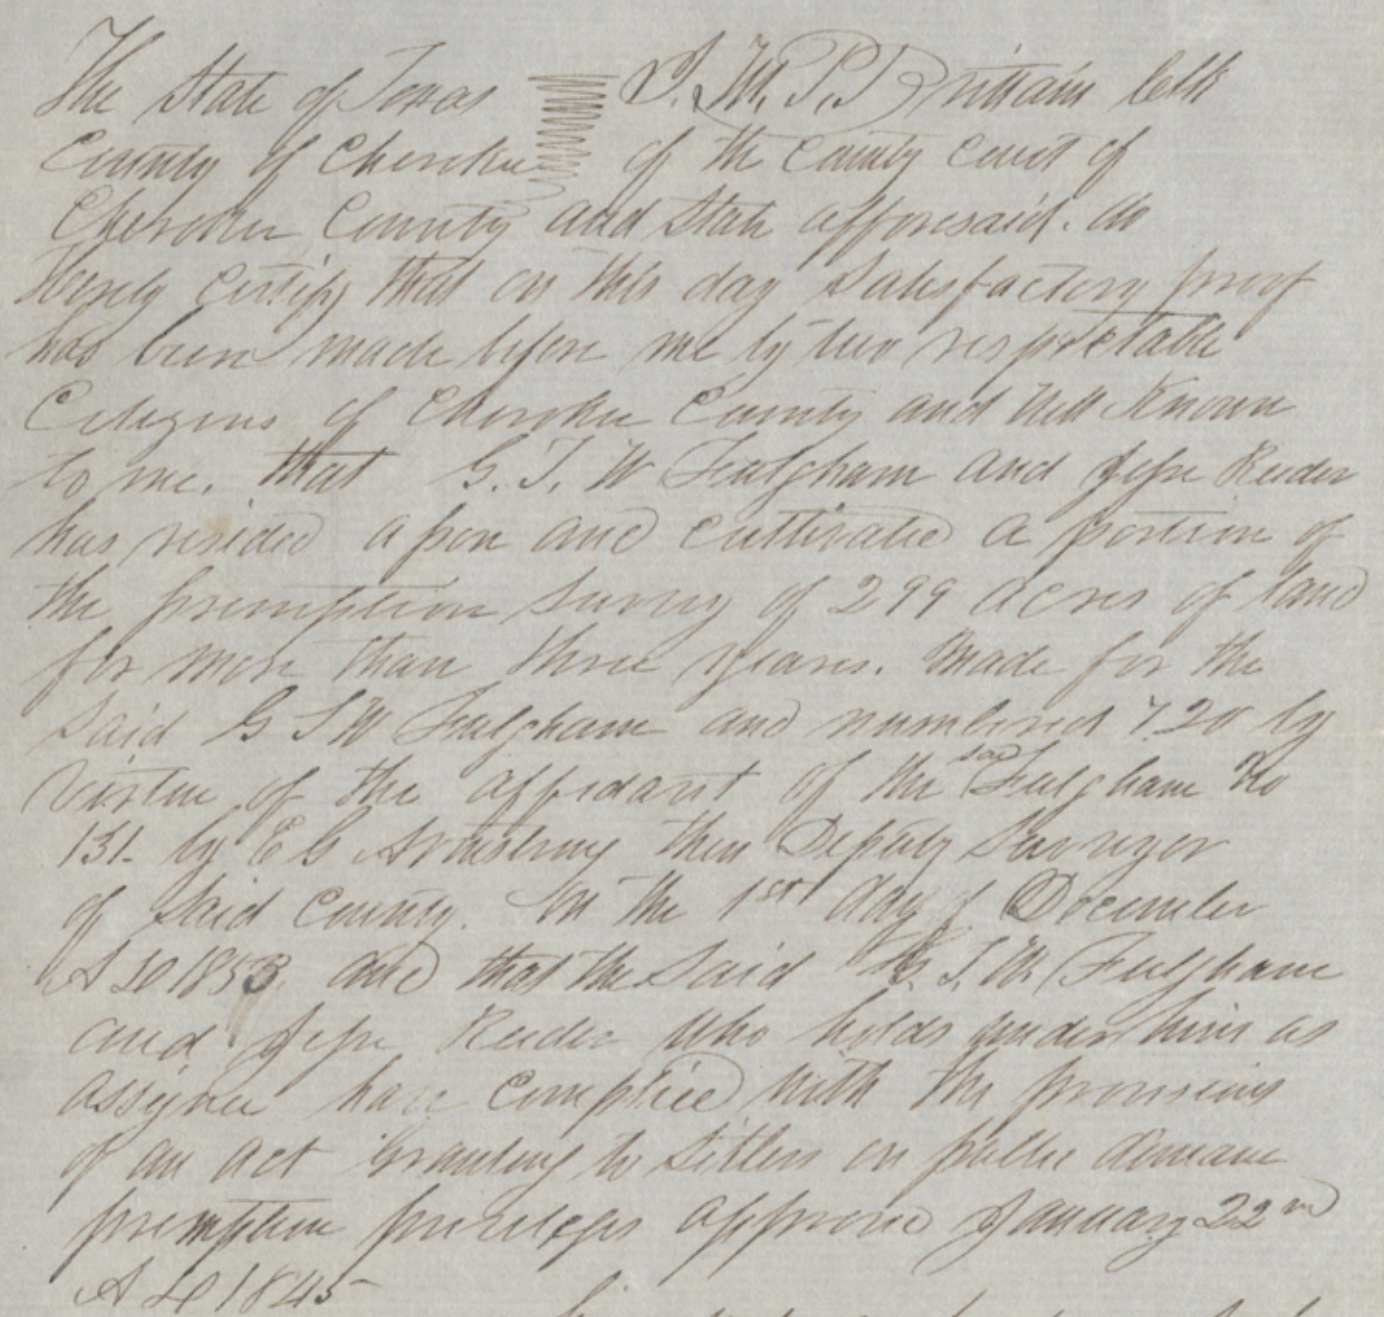 The State of Texas I. M. P. T. Brittain Clk
County of Cherokee of the County Court of
Cherokee County and State afforesaid. do
hereby certify that on this day satisfactory proof
has been made before me by two respectable
Citizens of Cherokee County and well Known
to me. that G. T. W Fulgham and Jesse Reeder
has resided apon and cultivated a portion of
the premption survey of 299 acres of land
for more than three years. Made for the
said G T W Fulgham and numbered 720 by
virtue of the affidavit of the said Fulgham No
131- by E G Armstrong then Deputy Surveyor
of said County. On the 1st day of December
A D 1853. and that the said G. T. W. Fulgham
and Jesse Reeder who holds under him as
assignee have complied with the provisions
of an act Granting to settlers on public domane
premption priveleges approved January 22nd
A D 1845